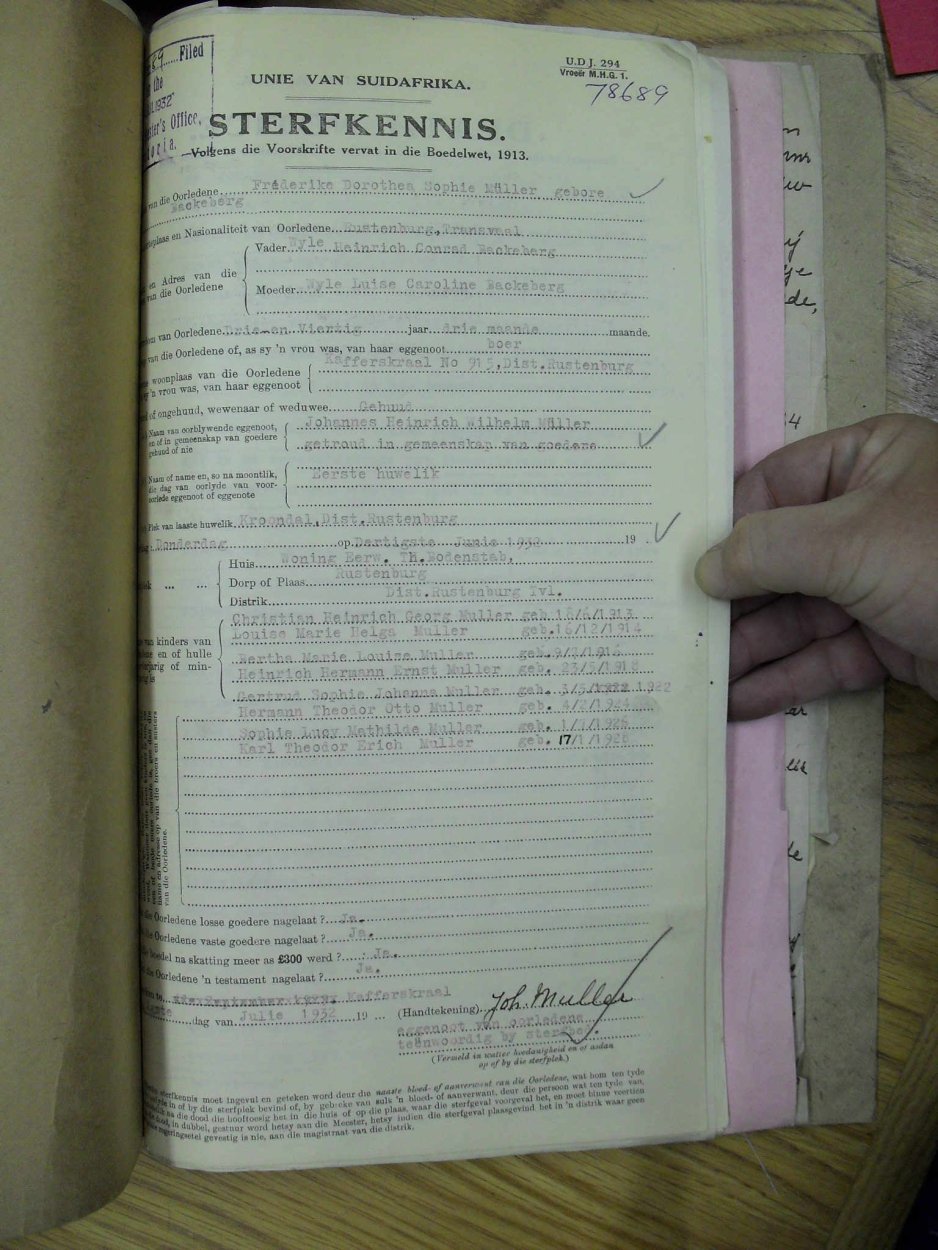 Filed
the
1932
ster's Office,
toria.
U.D J. 294
Vroeër M.H.G. 1.
78689
UNIE VAN SUIDAFRIKA.
STERFKENNIS.
Volgens die Voorskrifte vervat in die Boedelwet, 1913.
van die Oorledene Fréderike Dorothea Sophie Müller gebore
Backeberg
plaas en Nasionaliteit van Oorledene Rustenburg,Transvaal
en Adres van die
van die Oorledene
Vader Wyle Heinrich Conrad Backeberg
Moeder Wyle Luise Caroline Backeberg
van Oorledene Drie-en Viertig jaar drie maande maande.
van die Oorledene of, as sy 'n vrou was, van haar eggenoot boer
woonplaas van die Oorledene
'n vrou was, van haar eggenoot
Kafferskraal No 915,Dist.Rustenburg
of ongehuud, wewenaar of weduwee Gehuud
Naam van oorblywende eggenoot,
en of in gemeenskap van goedere
gehuud of nie
Johannes Heinrich Wilhelm Müller
getroud in gemeenskap van goedere
Naam of name en, so na moontlik,
die dag van oorlyde van voor-
oorlede eggenoot of eggenote
Eerste huwelik
Plek van laaste huwelik Kroondal,Dist.Rustenburg
Donderdag op Dertigste Junie 1932 19
Huis Woning Eerw. Th.Bodenstab,
Dorp of Plaas Rustenburg
Distrik Dist.Rustenburg Tvl.
van kinders van
en of hulle
jarig of min-
is
Christian Heinrich Georg Muller geb.18/6/1913
Louise Marie Helga Muller geb.16/12/1914
Bertha Marie Louise Muller geb. 9/3/1916
Heinrich Hermann Ernst Muller geb. 23/5/1918
Gertrud Sophie Johanna Muller geb. 3/5/1922 1922
Hermann Theodor Otto Muller geb. 4/2/1924
Sophie Lucy Mathilde Muller geb. 1/1/1926
Karl Theodor Erich Muller geb. 17/1/1928
van die Oorledene.
die Oorledene losse goedere nagelaat ? Ja.
die Oorledene vaste goedere nagelaat ? Ja.
boedel na skatting meer as £300 werd ? Ja.
die Oorledene 'n testament nagelaat ? Ja.
te Kafferskraal
dag van Julie 1932 19
(Handtekening) Joh. Muller
eggenoot van oorledene
teenwoordig by sterfbed.
(Vermeld in watter hoedanigheid en of aldan
op of by die sterfplek.)
sterfkennis moet ingevul en geteken word deur die naaste bloed- of aanverwant van die Oorledene, wat hom ten tyde
in of by die sterfplek bevind of, by gebreke van sulk 'n bloed- of aanverwant, deur die persoon wat ten tyde van,
na die dood die hooftoesig het in die huis of op die plaas, waar die sterfgeval voorgeval het, en moet binne veertien
dood, in dubbel, gestuur word hetsy aan die Meester, hetsy indien die sterfgeval plaasgevind het in 'n distrik waar geen
regeringsetel gevestig is nie, aan die magistraat van die distrik.